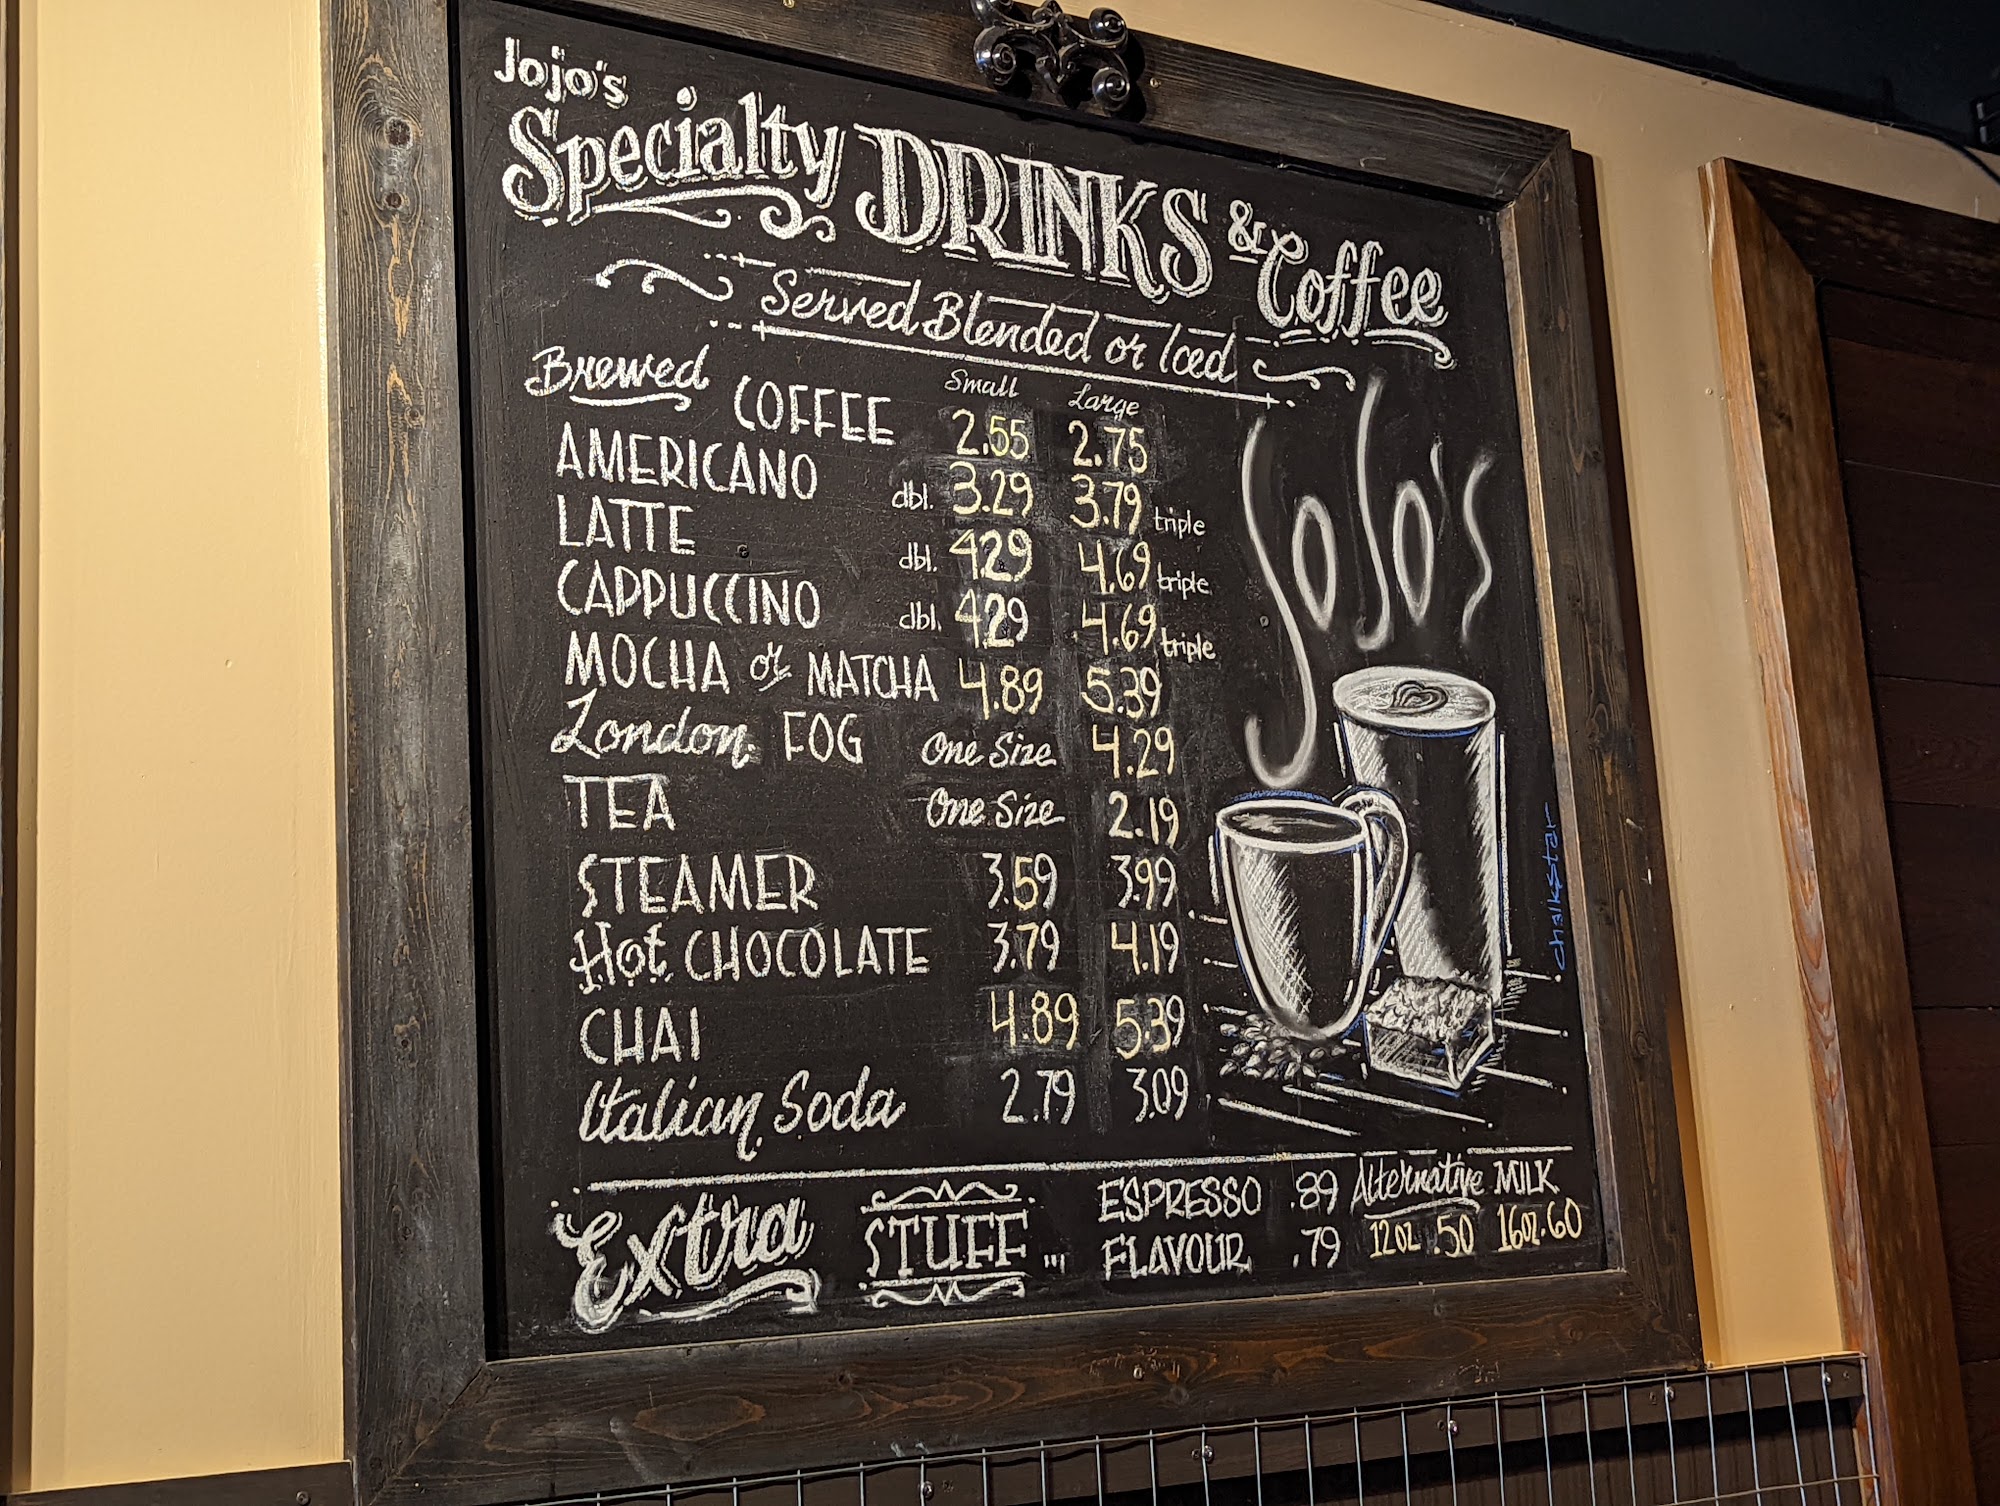 Jojo's
Specialty DRINKS & Coffee
Served Blended or Iced
Small Large
Brewed COFFEE 2.55 2.75
AMERICANO dbl. 3.29 3.79 triple
LATTE dbl. 4.29 4.69 triple
CAPPUCCINO dbl. 4.29 4.69 triple
MOCHA or MATCHA 4.89 5.39
London FOG One Size 4.29
TEA One Size 2.19
STEAMER 3.59 3.99
Hot CHOCOLATE 3.79 4.19
CHAI 4.89 5.39
Italian Soda 2.79 3.09
JoJo's
chalkstar
Extra STUFF ...
ESPRESSO .89
FLAVOUR .79
Alternative MILK
12oz .50 16oz .60